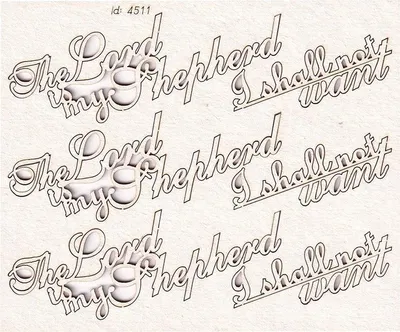 Id: 4511
The Lord
is my Shepherd
I shall not
want
The Lord
is my Shepherd
I shall not
want
The Lord
is my Shepherd
I shall not
want